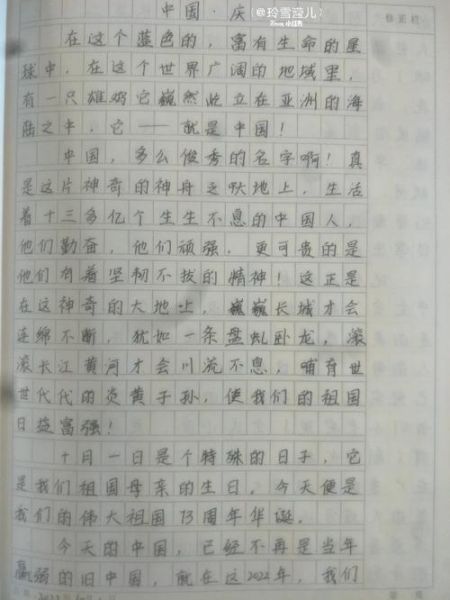 @玲雪滢儿》
小红书
中国·庆
修正栏
在这个蓝色的，富有生命的星
球中，在这个世界广阔的地域里，
有一只雄鸡它巍然屹立在亚洲的海
陆之中，它——就是中国！
中国，多么俊秀的名字啊！真
是这片神奇的神舟之吠地上，生活
着十三多亿个生生不息的中国人，
他们勤奋，他们顽强，更可贵的是
他们有着坚韧不拔的精神！这正是
在这神奇的大地上，巍巍长城才会
连绵不断，犹如一条盘虬卧龙，滚
滚长江黄河才会川流不息，哺育世
世代代的炎黄子孙，使我们的祖国
日益富强！
十月一日是个特殊的日子，它
是我们祖国母亲的生日，今天便是
我们的伟大祖国73周年华诞。
今天的中国，已经不再是当年
羸弱的旧中国，就在这2022年，我们